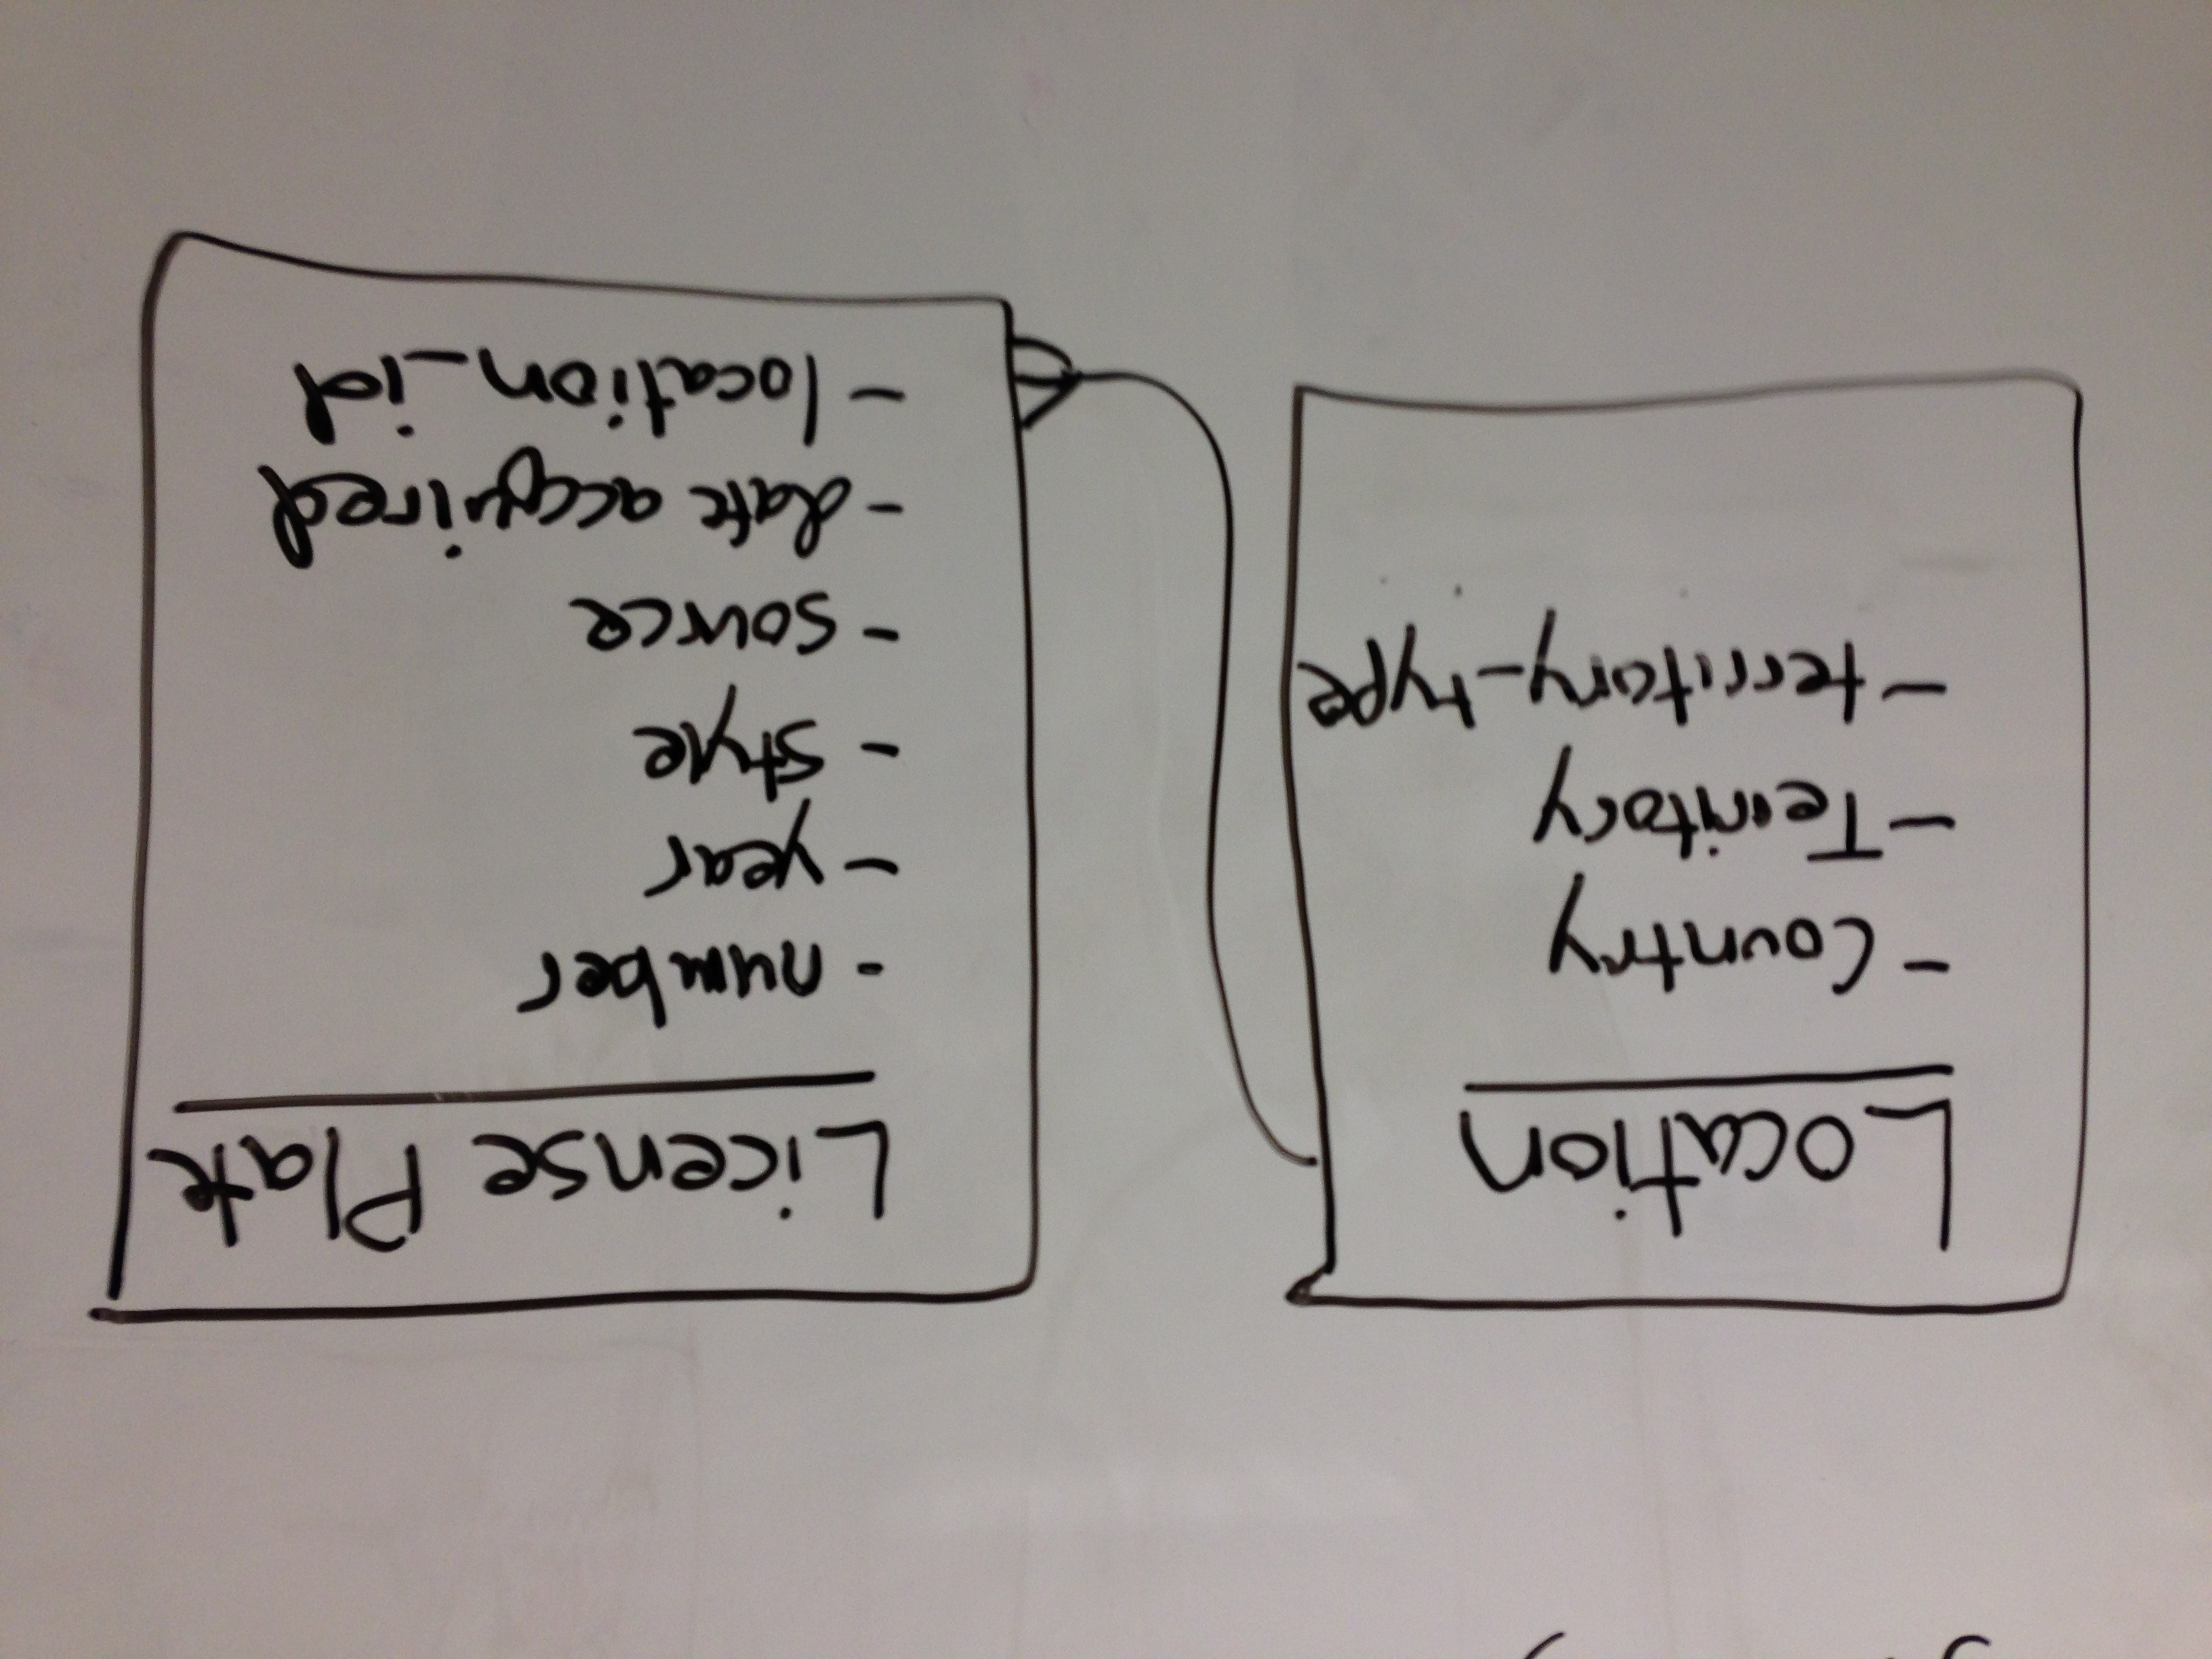 Location
- Country
- Territory
- territory_type
License Plate
- number
- year
- style
- source
- date accquired
- location_id